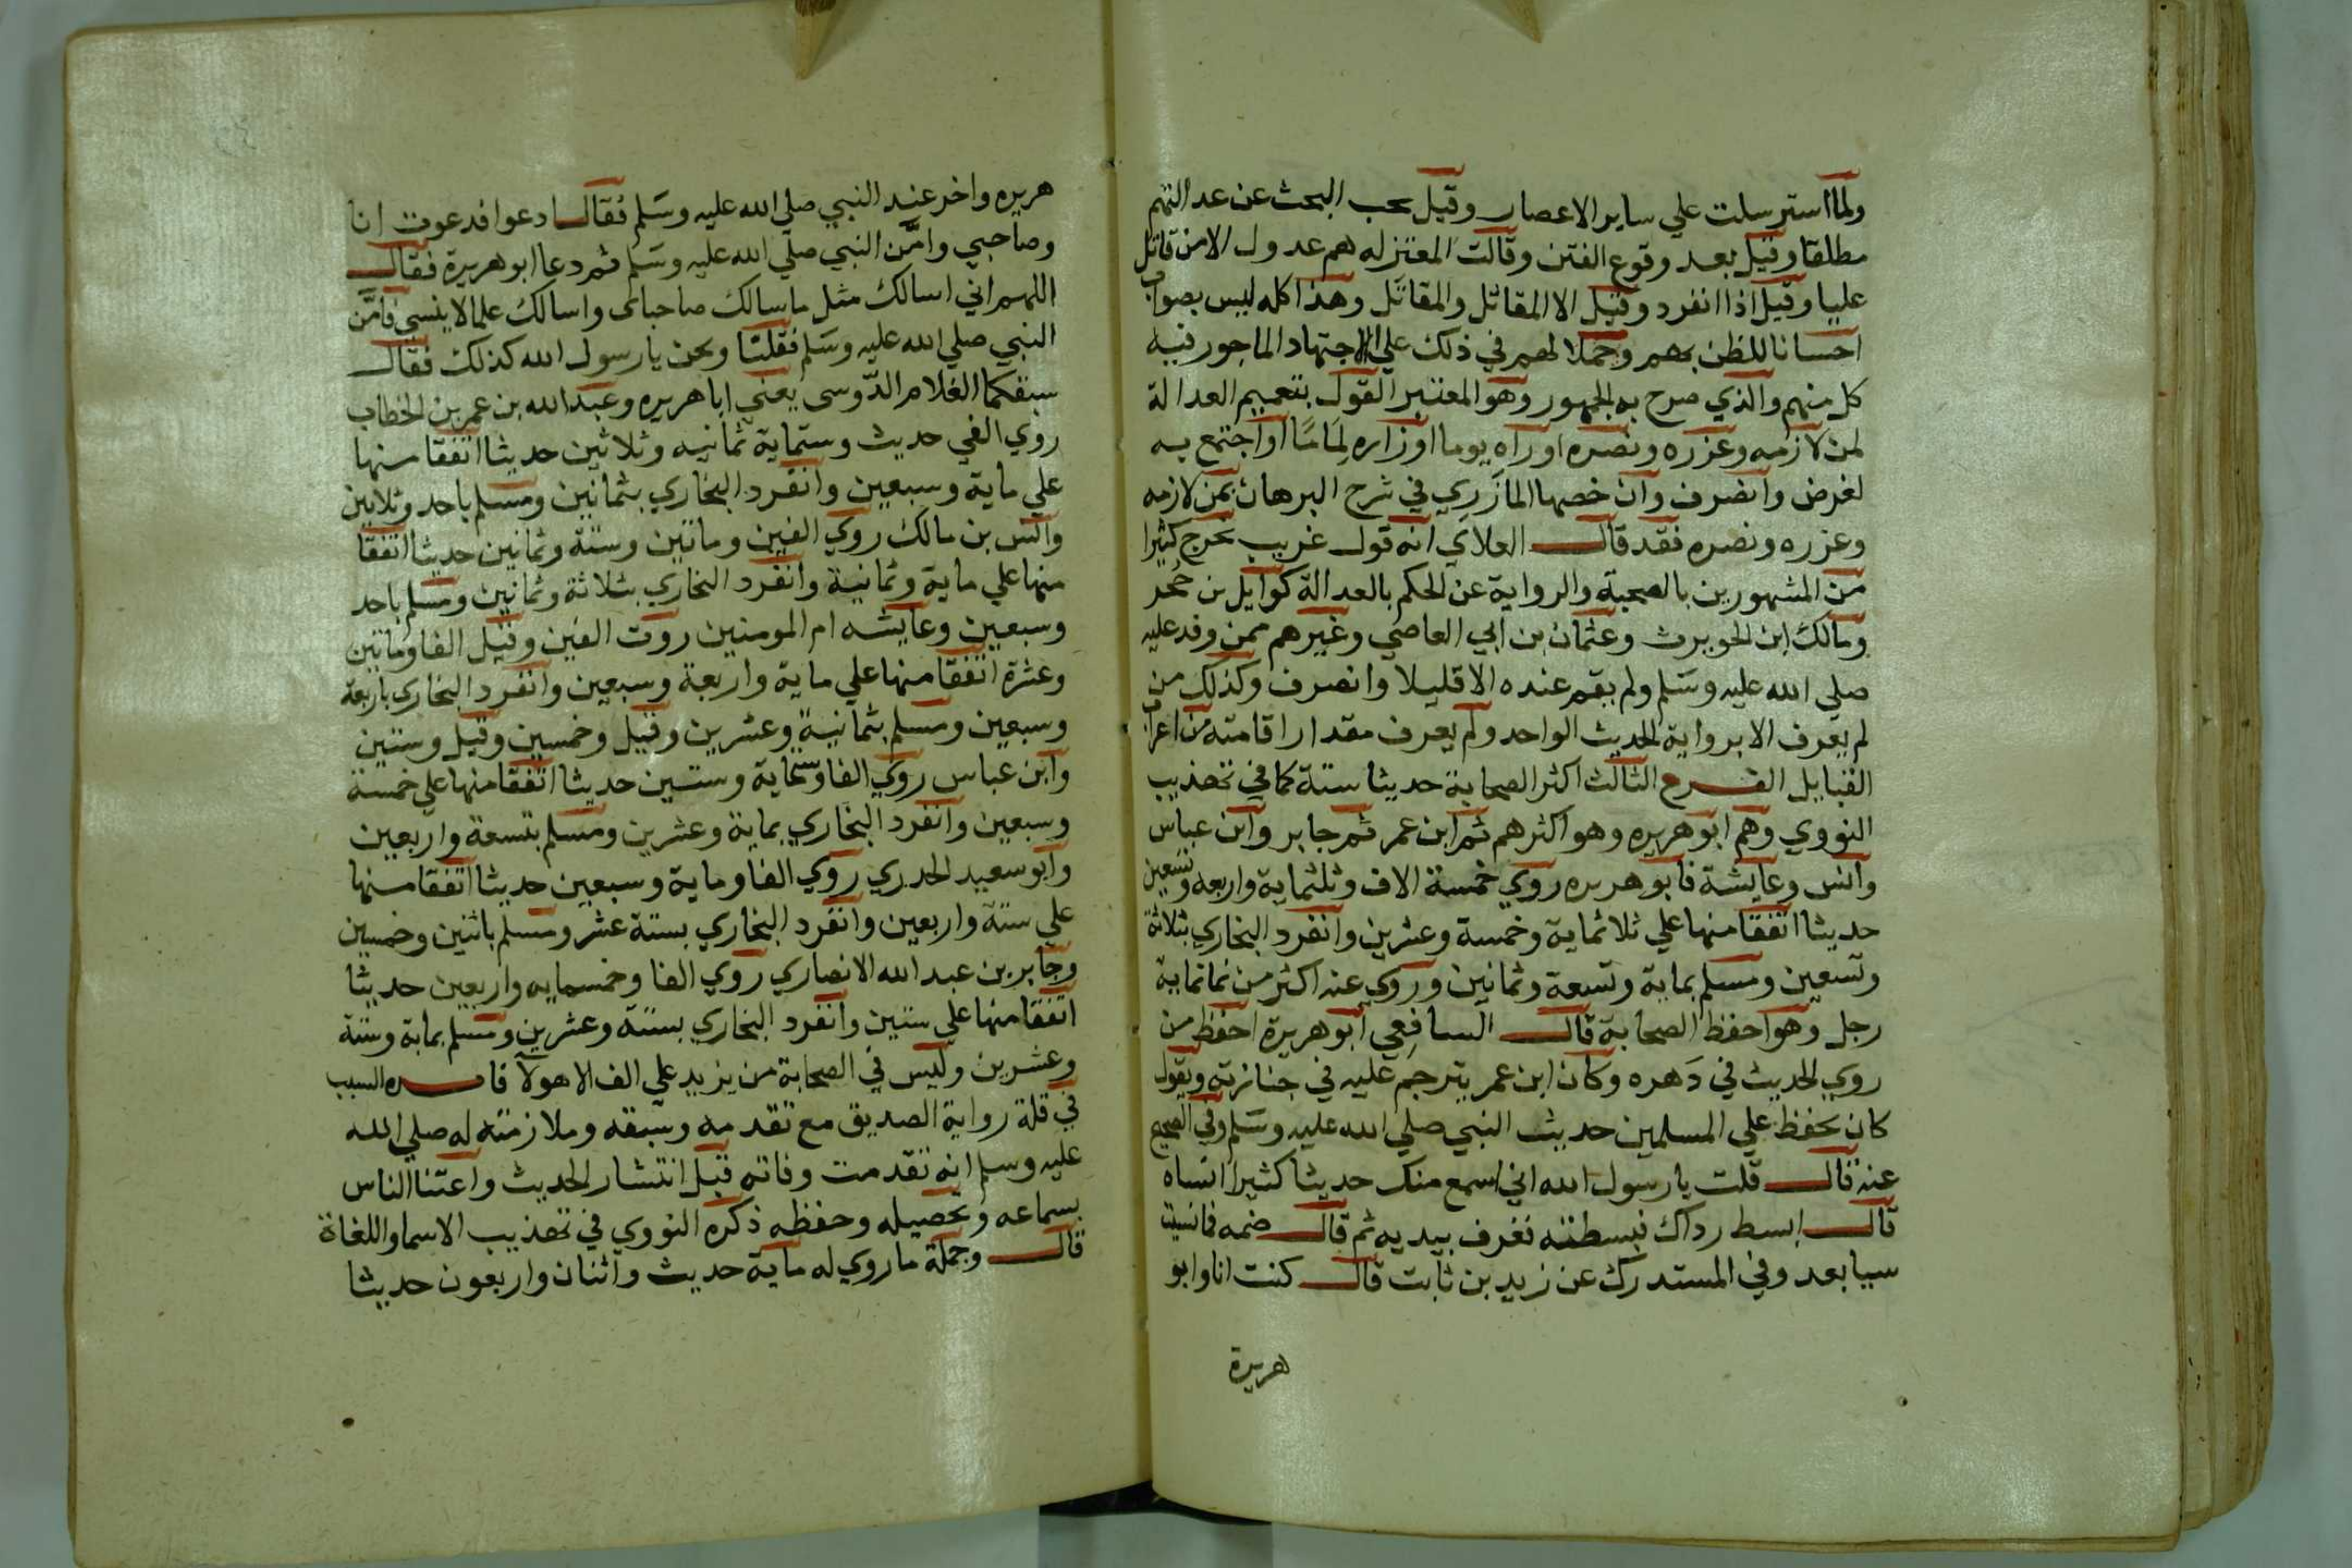 ولما استرسلت علي ساير الاعصار وقيل يجب البحث عن عدالتهم
مطلقا وقيل بعد وقوع الفتن وقالت المعتزله هم عدول الا من قاتل
عليا وقيل اذا انفرد وقيل الا المقاتل والمقاتَل وهذا كله ليس بصواب
احسانا للظن بهم وحملا لهم في ذلك علي الاجتهاد الماجور فيه
كل منهم والذي صرح به الجمهور وهو المعتبر القول بتعميم العدالة
لمن لازمه وعزره ونصره او راه يوما او زاره لِمَامًا او اجتمع به
لغرض وانصرف وان خصها المازَرِي في شرح البرهان بمن لازمه
وعزره ونصره فقد قال العلاي انه قول غريب يخرج كثيرا
من المشهورين بالصحبة والرواية عن الحكم بالعدالة كوايل بن حُجر
ومالك ابن الحويرث وعثمان بن ابي العاصي وغيرهم ممن وفد عليه
صلي الله عليه وسَلم ولم يقم عنده الا قليلا وانصرف وكذلك من
لم يعرف الا برواية الحديث الواحد ولم يعرف مقدار اقامته من اعراب
القبايل الفرع الثالث اكثر الصحابة حديثا ستة كما في تهذيب
النووي وهم ابو هريره وهو اكثرهم ثم ابن عمر ثم جابر وابن عباس
وانس وعايشة فابو هريره روي خمسة الاف وثلثماية واربعه وسبعين
حديثا اتفقا منها علي ثلاثماية وخمسة وعشرين وانفرد البخاري بثلاثة
وتسعين ومسلم بماية وتسعة وثمانين وروي عنه اكثر من ثمانماية
رجل وهو احفظ الصحابة قال السافعي ابو هريرة احفظ من
روي الحديث في دَهره وكان ابن عمر يترحم عليه في جنازته ويقول
كان يحفظ علي المسلمين حديث النبي صلي الله عليه وسَلم وفي الصحيح
عنه قال قلت يا رسول الله اني اسمع منك حديثا كثيرا انساه
قال ابسط رداك فبسطته فغرف بيديه ثم قال ضمه فما نسيت
سيا بعد وفي المستدرك عن زيد بن ثابت قال كنت انا وابو
هريرة
هريره واخر عند النبي صلي الله عليه وسَلم فقال ادعوا فدعوت انا
وصاحبي وامَّن النبي صلي الله عليه وسَلم ثم دعا ابو هريرة فقال
اللهم اني اسالك مثل ما سالك صاحباى واسالك علما لا ينسي فامَّن
النبي صلي الله عليه وسَلم فقلنا ونحن يا رسول الله كذلك فقال
سبقكما الغلام الدَّوسى يعني ابا هريره وعبد الله بن عمر بن الخطاب
روي الفي حديث وستماية ثمانيه وثلاثين حديثا اتفقا منها
علي ماية وسبعين وانفرد البخاري بثمانين ومسلم باحد وثلاثين
وانس بن مالك روي الفين وماتين وستة وثمانين حديثا اتفقا
منها علي ماية وثمانية وانفرد البخاري بثلاثة وثمانين ومسلم باحد
وسبعين وعايشه ام المومنين روت الفين وقيل الفا وماتين
وعشرة اتفقا منها علي ماية واربعة وسبعين وانفرد البخاري باربعة
وسبعين ومسلم بثمانية وعشرين وقيل وخمسين وقيل وستين
وابن عباس روي الفا وستماية وستين حديثا اتفقا منها علي خمسة
وسبعين وانفرد البخاري بماية وعشرين ومسلم بتسعة واربعين
وابو سعيد الخدري روي الفا وماية وسبعين حديثا اتفقا منها
علي ستة واربعين وانفرد البخاري بستة عشر ومسلم باثنين وخمسين
وجابر بن عبد الله الانصاري روي الفا وخمسمايه واربعين حديثا
اتفقا منها علي ستين وانفرد البخاري بستة وعشرين ومسلم بماية وستة
وعشرين وليس في الصحابة من يزيد علي الف الا هولآ السبب
في قلة رواية الصديق مع تقدمه وسبقه وملازمته له صلي الله
عليه وسلم انه تقدمت وفاته قبل انتشار الحديث واعتنا الناس
بسماعه وتحصيله وحفظه ذكره النووي في تهذيب الاسما واللغاة
قال وجملة ما روي له ماية حديث واثنان واربعون حديثا